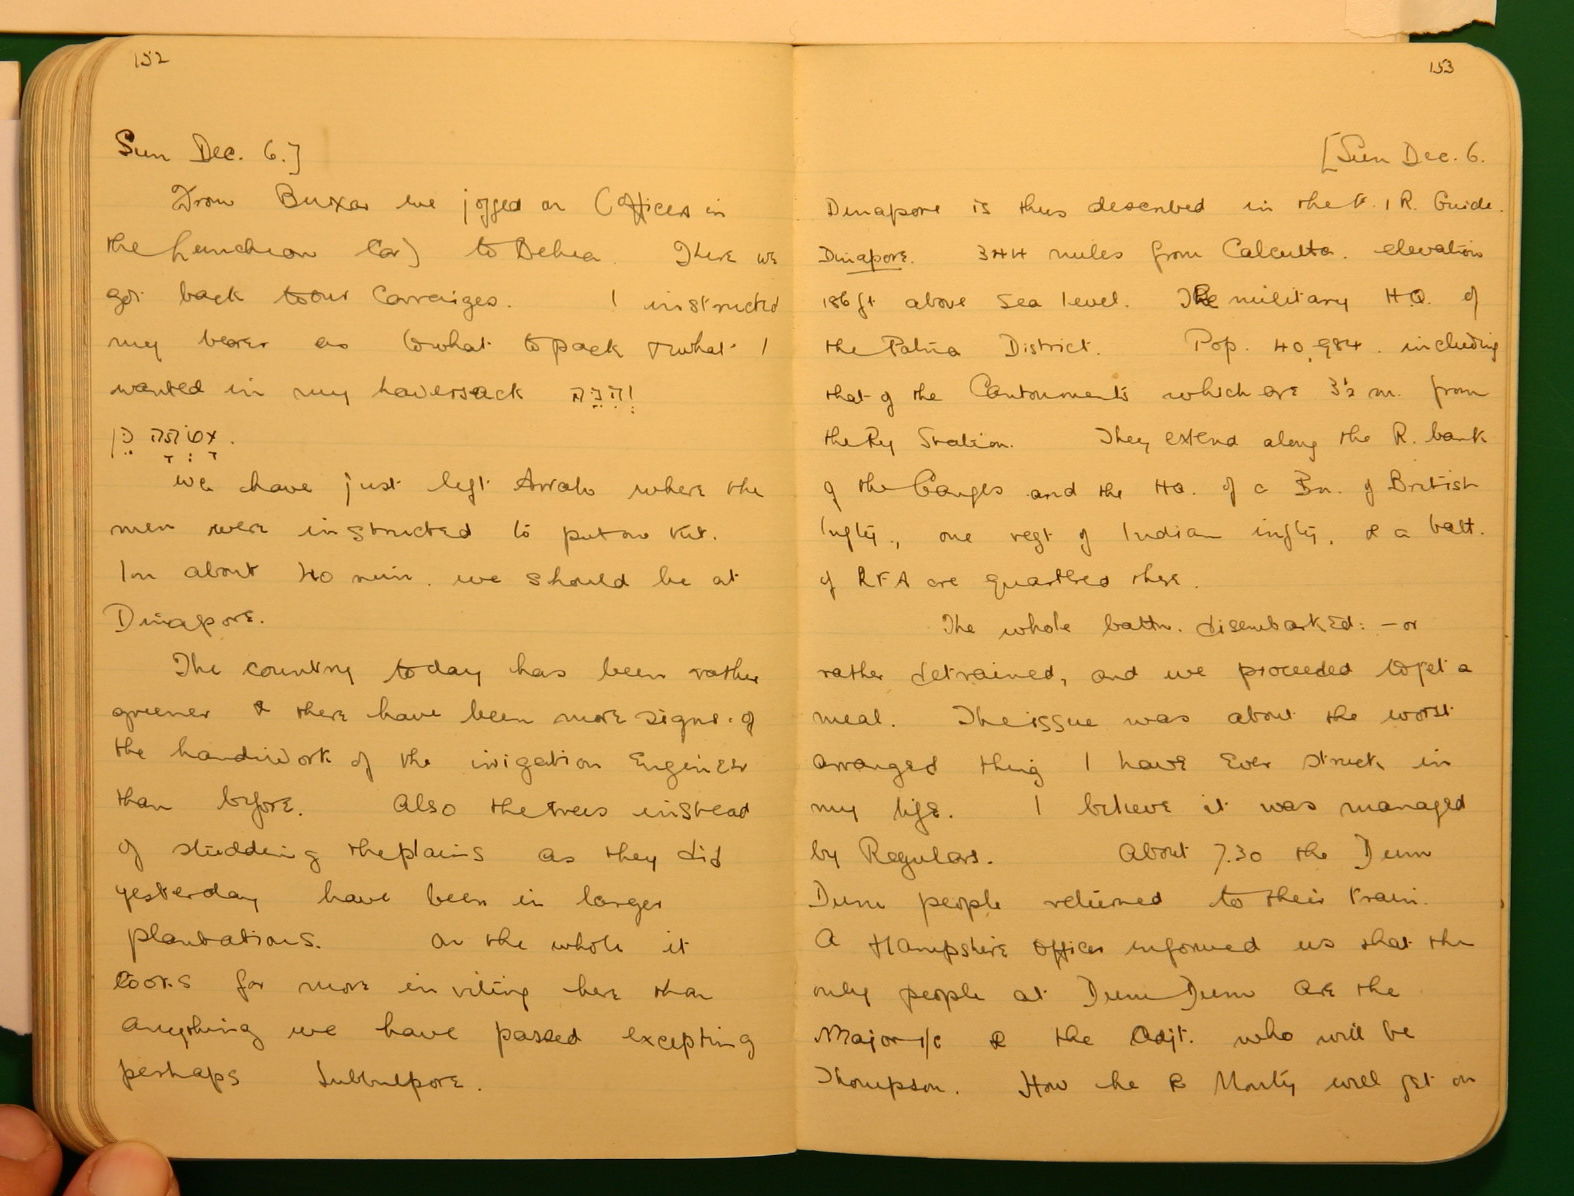 152
Sun Dec. 6.]
From Buxar we jogged on (Officers in
the Luncheon Car) to Behea. There we
got back to our Carraiges. I instructed
my bearer as to what to pack & what I
wanted in my haversack
We have just left Arrah where the
men were instructed to put on kit.
In about 40 min. we should be at
Dinapore.
The country today has been rather
greener & there have been more signs of
the handiwork of the irrigation Engineer
than before. Also the trees instead
of studding the plains as they did
yesterday have been in larger
plantations. On the whole it
looks far more inviting here than
anything we have passed excepting
perhaps Jubbulpore.
153
[Sun Dec. 6.
Dinapore is thus described in the E. I R. Guide.
Dinapore. 344 miles from Calcutta. elevation
186 ft above sea level. The military H.Q. of
the Patna District. Pop. 40,984. including
that of the Cantonments which are 3½ m. from
the Ry Station. They extend along the R. bank
of the Ganges and the HQ. of a Bn. of British
Infty., one regt of Indian infty, & a batt.
of RFA are quartered there.
The whole battn. disembarked: — or
rather detrained, and we proceeded to get a
meal. The issue was about the worst
arranged thing I have ever struck in
my life. I believe it was managed
by Regulars. About 7.30 the Dum
Dum people returned to their train.
A Hampshire Officer informed us that the
only people at Dum Dum are the
Major i/c & the Adjt. who will be
Thompson. How he & Monty will get on